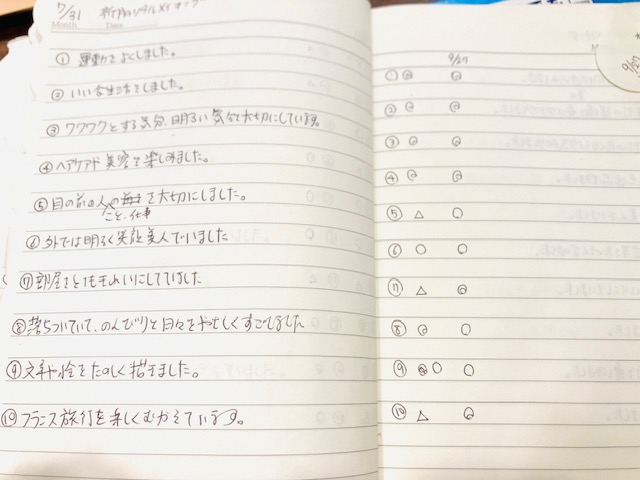 7/31 新月ソウルメイキング
Month Date
① 運動をよくしました。
② いい食生活をしました。
③ ワクワクとする気分、明るい気分を大切にしています。
④ ヘアケアや美容を楽しみました。
⑤ 目の前の人の を大切にしました。
こと、仕事
⑥ 外では明るく笑顔美人でいました
⑦ 部屋をとてもきれいにしていました
⑧ 落ちついていて、のんびりと日々をやさしくすごしました
⑨ 文章や絵をたのしく描きました。
⑩ フランス旅行を楽しくむかえています。
9/27
① ◎ ◎
② ◎ ◎
③ ◎ ◎
④ ◎ ◎
⑤ △ ○
⑥ ○ ○
⑦ △ ◎
⑧ ◎ ○
⑨ ○ ○
⑩ △ ◎
9/27